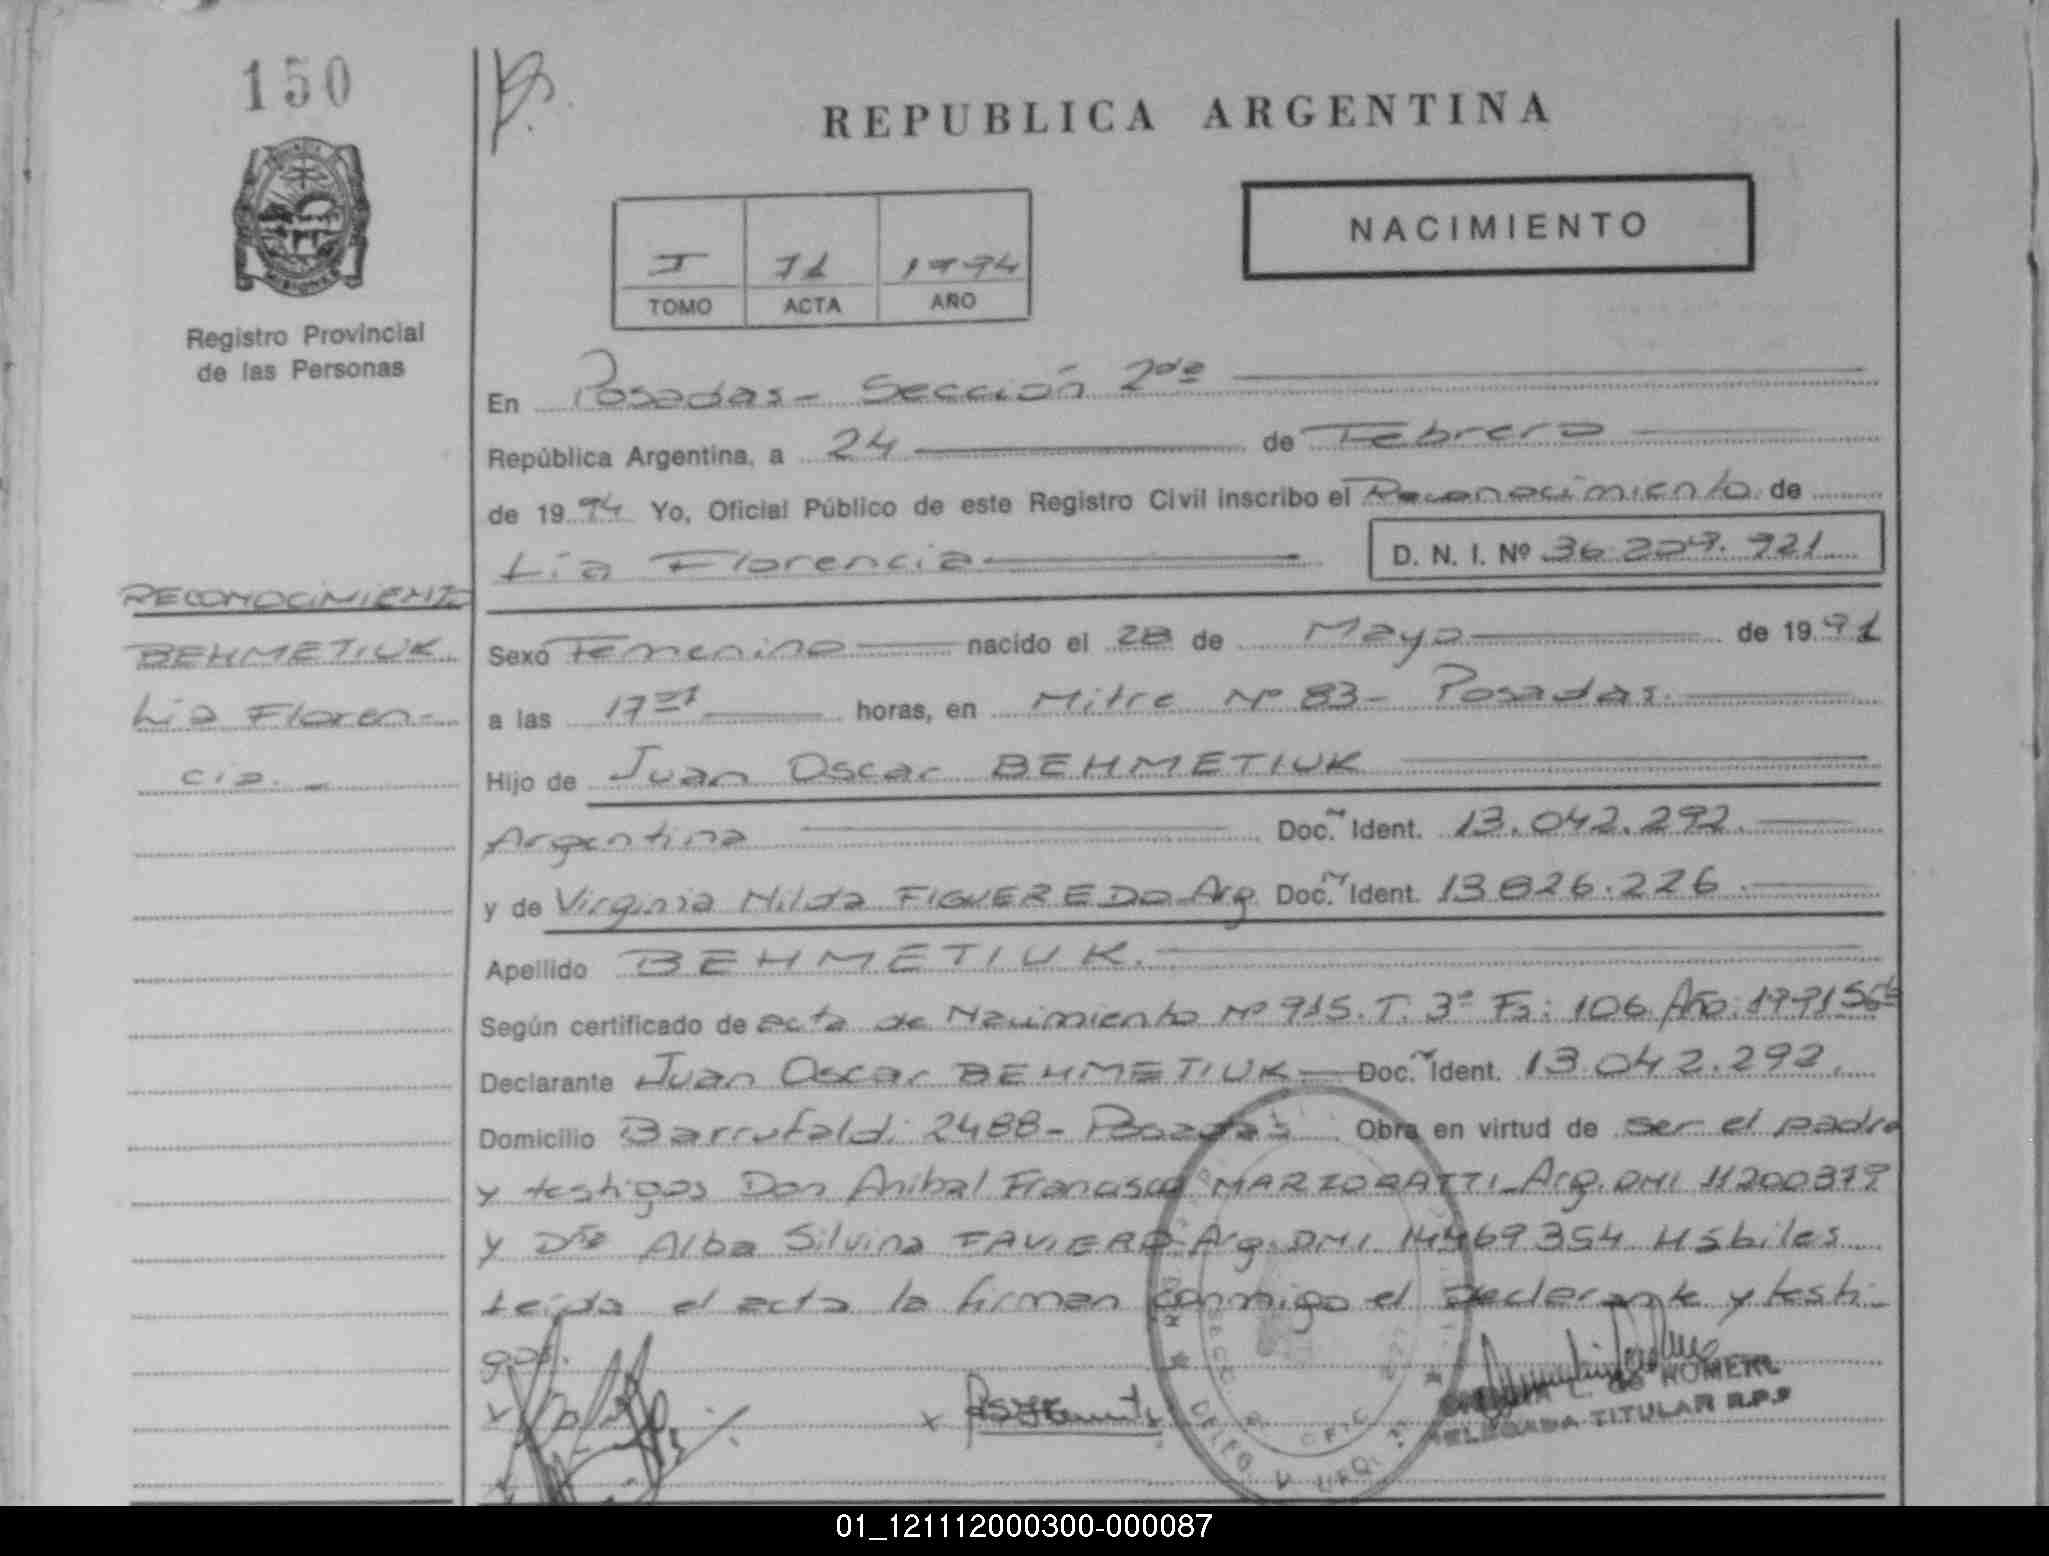 150
REPUBLICA ARGENTINA
NACIMIENTO
I 71 1994
TOMO ACTA AÑO
Registro Provincial
de las Personas
En Posadas - Sección 2da
República Argentina, a 24 de Febrero
de 1994 Yo, Oficial Público de este Registro Civil inscribo el Reconocimiento de
Lía Florencia D. N. I. Nº 36.209.921
RECONOCIMIENTO
BEHMETIUK
Lía Floren-
cia.-
Sexo Femenino nacido el 28 de Mayo de 1991
a las 17 horas, en Mitre Nº 83 - Posadas.
Hijo de Juan Oscar BEHMETIUK
Argentina Doc. Ident. 13.042.292.
y de Virginia Nilda FIGUEREDO - Arg. Doc. Ident. 13826.226.
Apellido BEHMETIUK.
Según certificado de acta de Nacimiento Nº 915. T. 3º Fs: 106 Año: 1991
Declarante Juan Oscar BEHMETIUK Doc. Ident. 13.042.292.
Domicilio Barrufaldi 2488 - Posadas Obra en virtud de ser el padre
y testigos Don Anibal Francisco MARZORATTI - Arg. DNI 11200379
y Dña Alba Silvina FAVIERO - Arg. DNI 14469354 Hábiles
Leída el acta la firman conmigo el Declarante y testi-
gos.
L. de ROMERO
DELEGADA TITULAR R.P.P
01_121112000300-000087